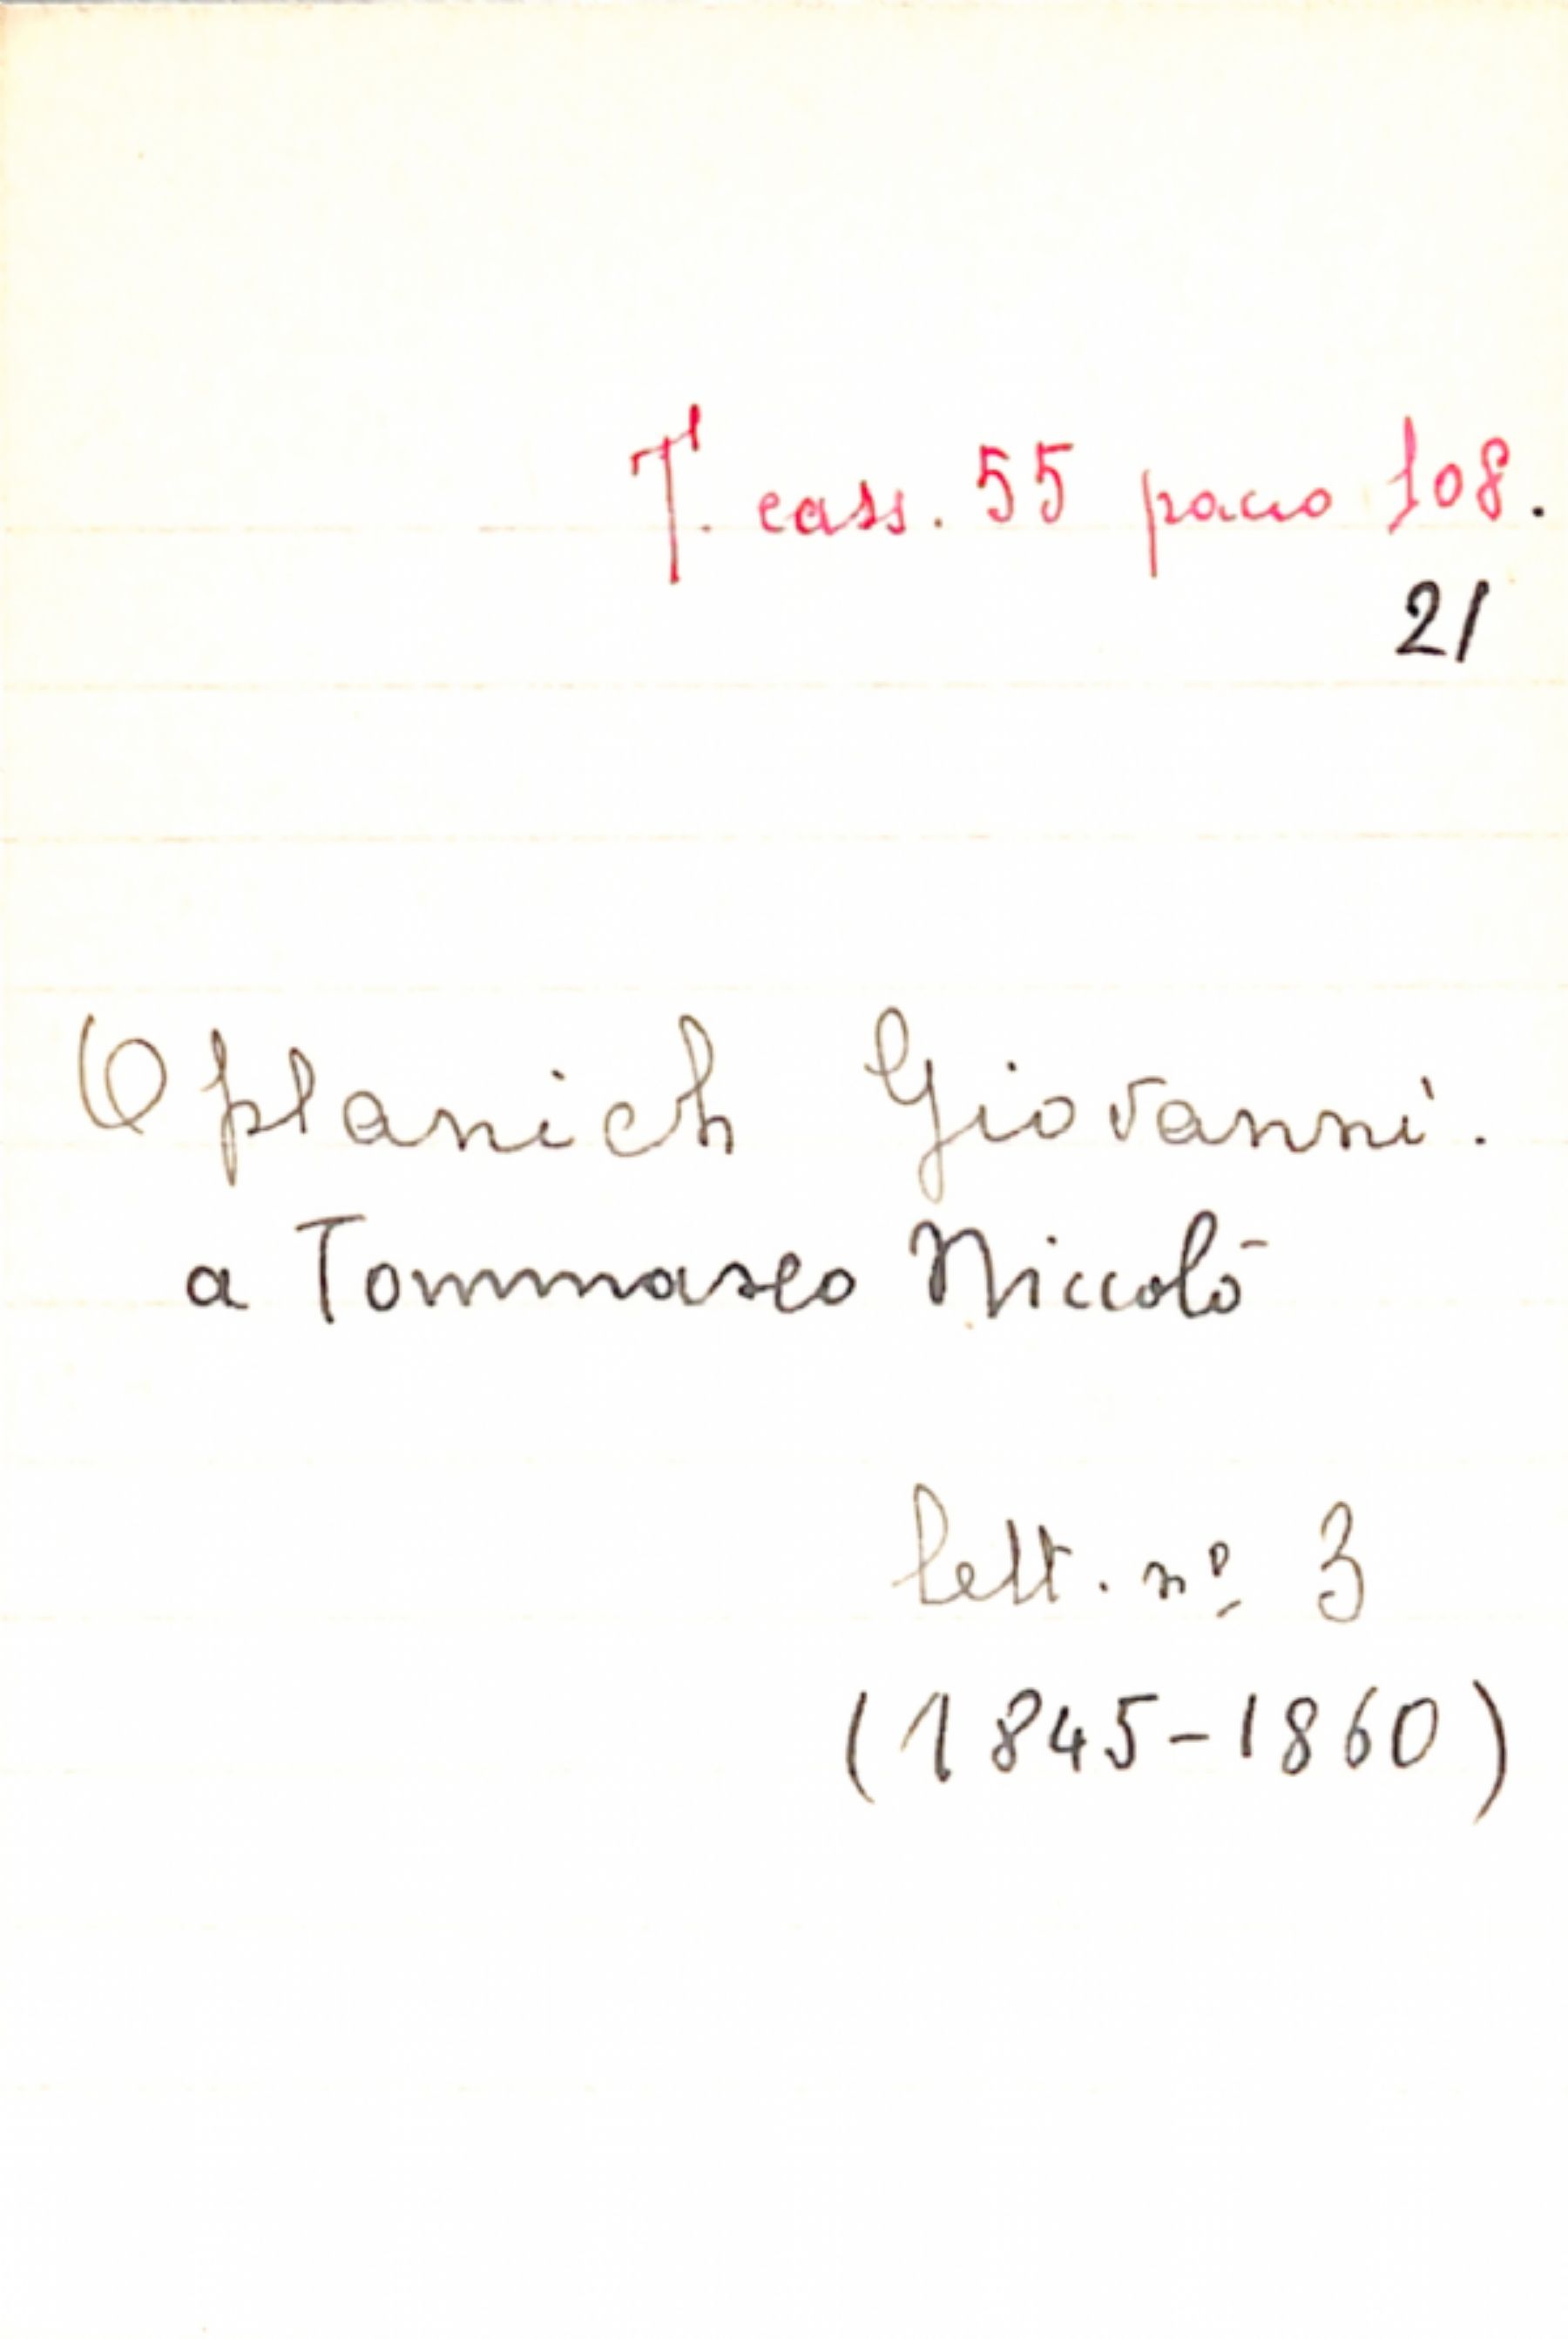 T. cass. 55 pacco 108.
21
Oplanich Giovanni.
a Tommaseo Niccolò
lett. nº 3
(1845-1860)